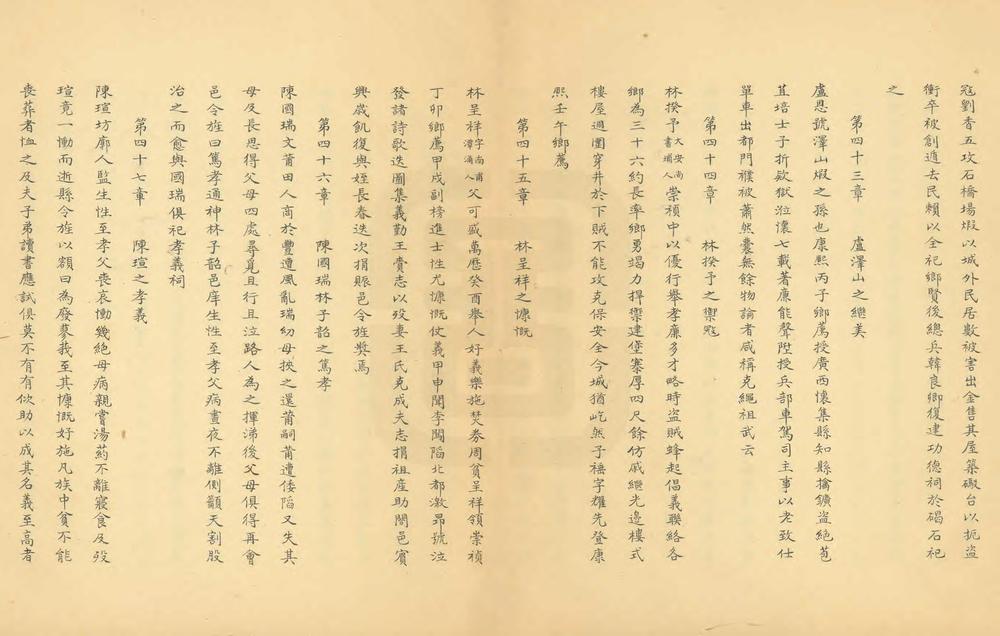 寇劉香五攻石橋場煅以城外民居數被害出金售其屋築礮台以扼盜
衝卒被創遁去民賴以全祀鄉賢後總兵韓良卿復建功德祠於碣石祀
之
第四十三章　盧澤山之繼美
盧恩號澤山煅之孫也康熙丙子鄉薦授廣西懷集縣知縣擒鑛盜絕苞
苴培士子折欵獄涖懷七載著廉能聲陞授兵部車駕司主事以老致仕
單車出都門襆被蕭然囊無餘物論者咸稱克繩祖武云
第四十四章　林揆予之禦寇
林揆予大安尚書埔人崇禎中以優行舉孝廉多才略時盜賊蜂起倡義聯絡各
鄉為三十六約長率鄉勇竭力捍禦建堡寨厚四尺餘仿戚繼光邊樓式
樓屋週圍穿井於下賊不能攻克保安全今城猶屹然子梅字耀先登康
熙壬午鄉薦
第四十五章　林呈祥之慷慨
林呈祥字南甫潭涌人父可盛萬歷癸酉舉人好義樂施焚券周貧呈祥領崇禎
丁卯鄉薦甲戌副榜進士性尤慷慨仗義甲申聞李闖陷北都激昂號泣
發諸詩歌迭圖集義勤王賫志以歿妻王氏克成夫志捐祖產助闔邑賓
興歲飢復與姪長春迭次捐賑邑令旌獎焉
第四十六章　陳國瑞林子韶之篤孝
陳國瑞文莆田人商於豐遭風亂瑞幼母挾之還莆嗣莆遭倭陷又失其
母及長思得父母四處尋覓且行且泣路人為之揮涕後父母俱得再會
邑令旌曰篤孝通神林子韶邑庠生性至孝父病晝夜不離側籲天割股
治之而愈與國瑞俱祀孝義祠
第四十七章　陳瑄之孝義
陳瑄坊廓人監生性至孝父喪哀慟幾絕母病親嘗湯葯不離寢食及歿
瑄竟一慟而逝縣令旌以額曰為廢蓼莪至其慷慨好施凡族中貧不能
喪葬者恤之及夫子弟讀書應試俱莫不有有佽助以成其名義至高者